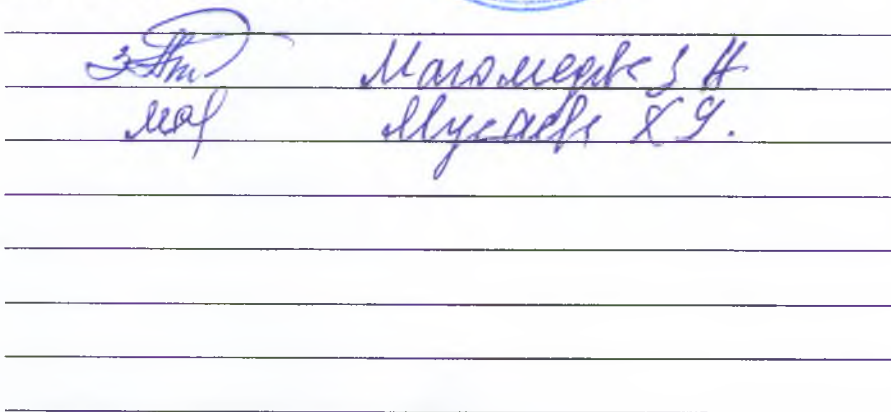 Магомедова З Н
Мусаева Х Я.